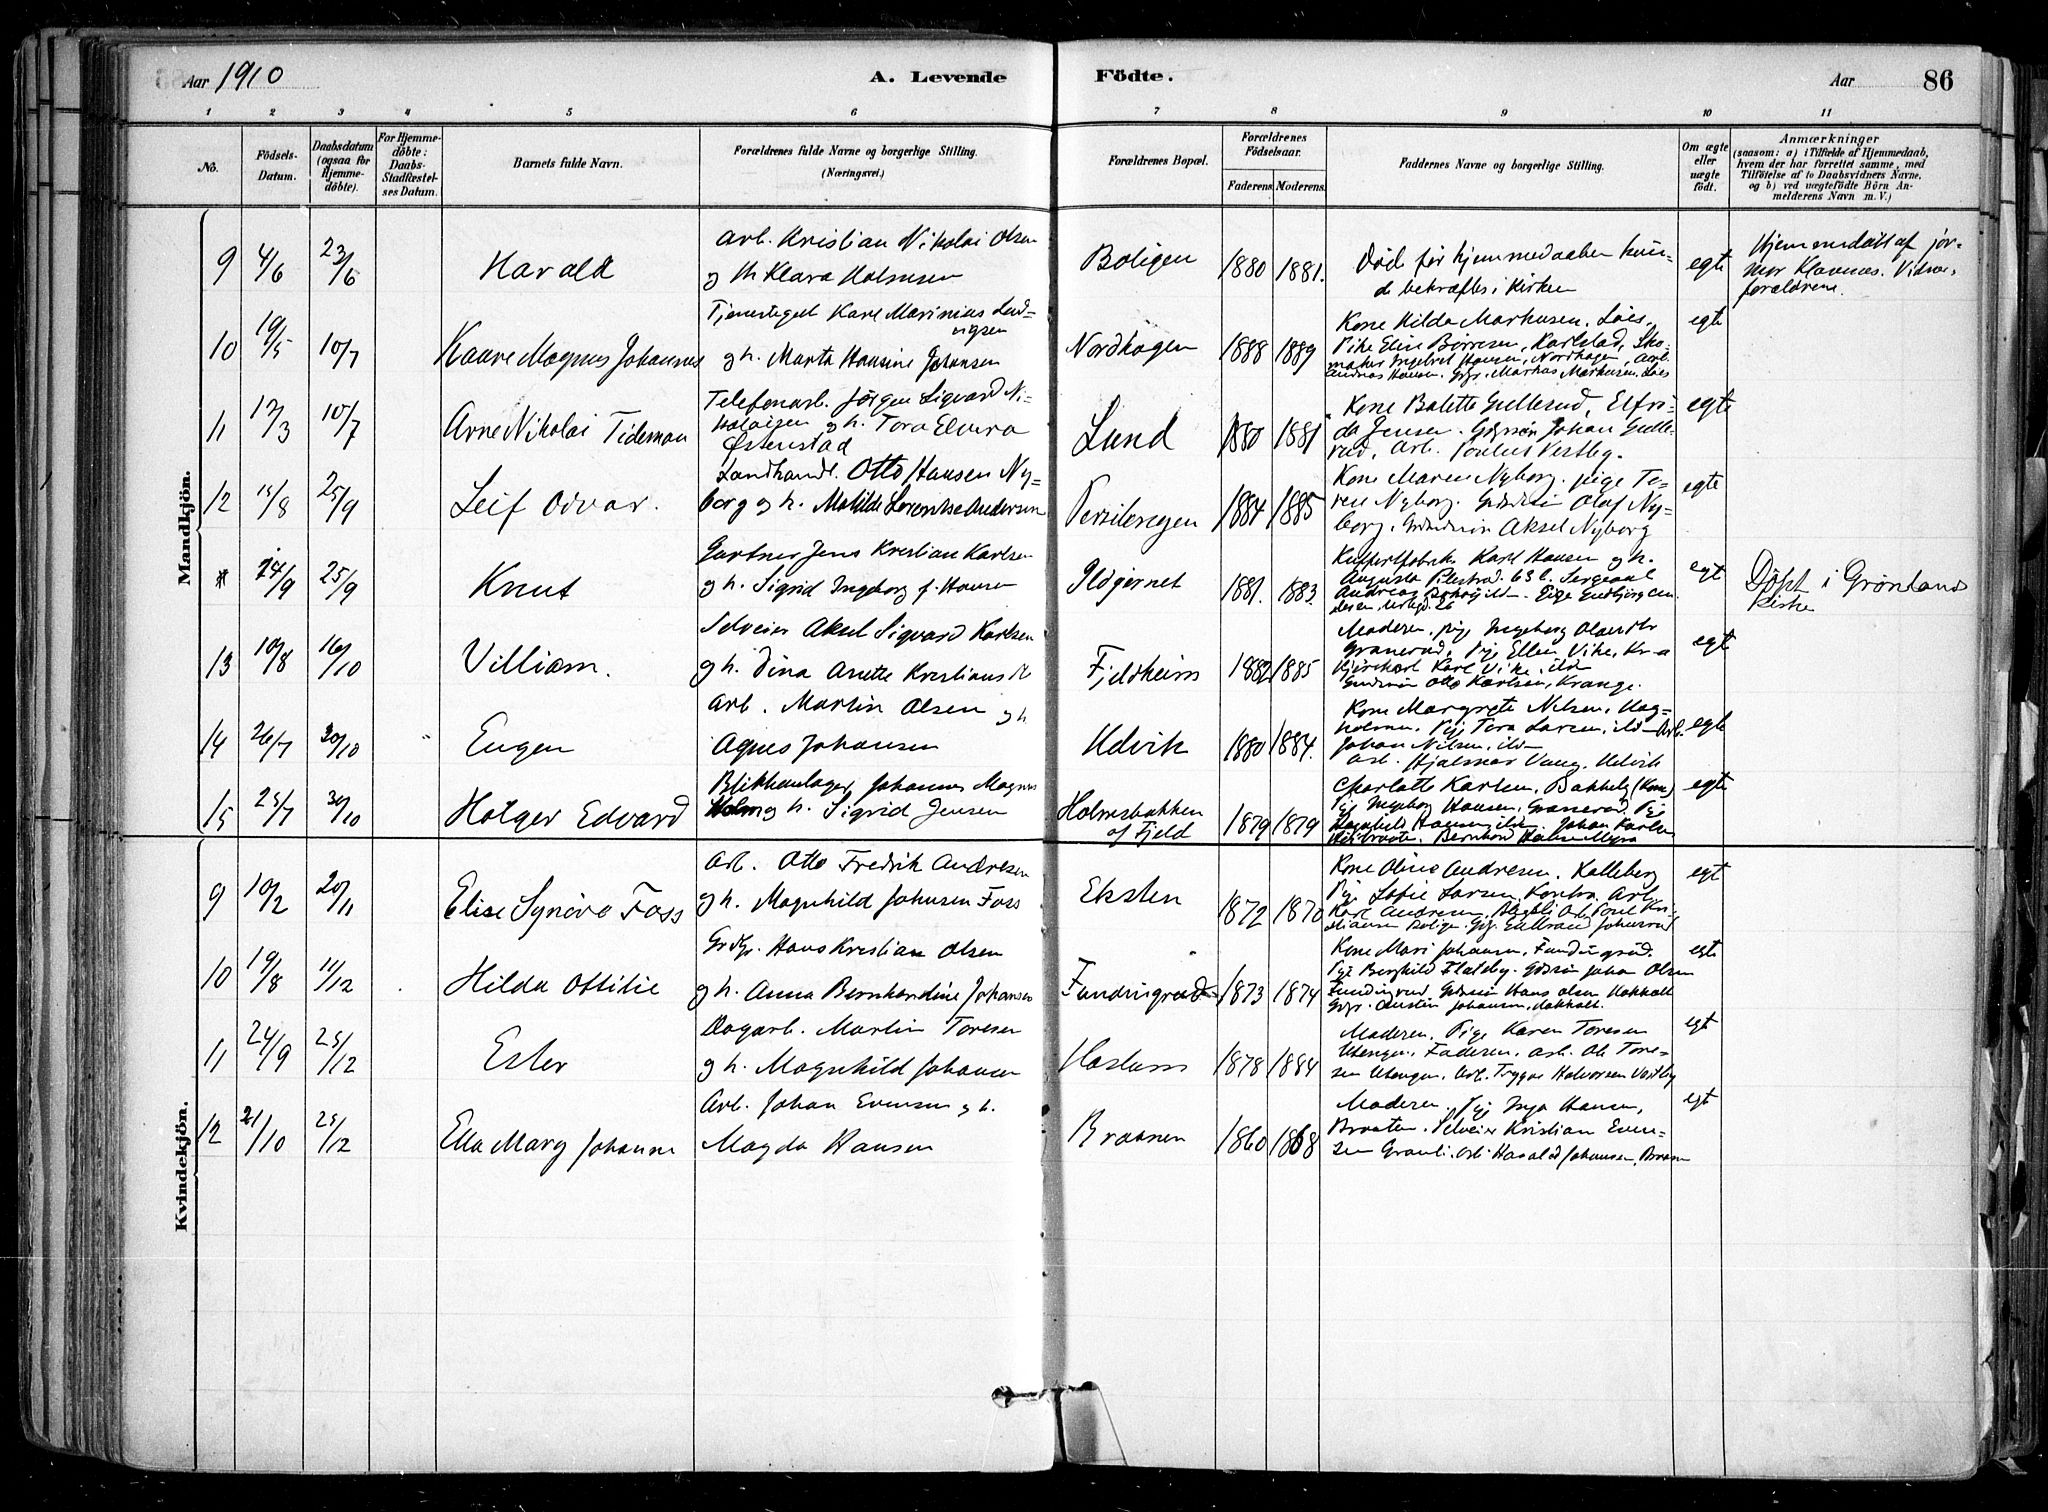 Aar 1910
A. Levende Födte.
Aar 86
1 2 3 4 5 6 7 8 9 10 11
No.
Födsels-Datum.
Daabsdatum (ogsaa for Hjemme-döbte).
For Hjemme-döbte: Daabs-Stadfæstel-ses Datum.
Barnets fulde Navn.
Forældrenes fulde Navne og borgerlige Stilling.
(Næringsvei.)
Forældrenes Bopæl.
Forældrenes Födselsaar.
Faderens. Moderens.
Faddernes Navne og borgerlige Stilling.
Om ægte eller uægte födt.
Anmærkninger
(saasom: a) i Tilfælde af Hjemmedaab, hvem der har forrettet samme, med Tilföielse af to Daabsvidners Navne, og b) ved uægtefödte Börn An-melderens Navn m. V.)
Mandkjön.
9 4/6 23/6 Harald
Arb. Kristian Nikolai Olsen
og h. Klara Halmsen
Boligen 1880 1881.
Död för hjemmedaaben kun-
de bekræftes i Kirken
egte
Hjemmedöbt af jor-
mor Klavenes. Vidner,
forældrene.
10 19/5 10/7 Kaare Magnus Johannes
Tjenestegut Karl Marinius Lud-
vigsen
og h. Marta Hansine Johansen
Nordhagen 1888 1889
Kone Hilda Markusen, Löes,
Pike Elise Börresen, Karlstad, Sko-
maker Ingebret Hansen, Nordhagen, Arb.
Andreas Hansen. Gdgr. Markus Markusen Löes
egte
11 17/3 10/7 Arne Nikolai Tideman
Telefonarb. Jörgen Sigvard Ni-
kolaisen og h. Tora Elvira
Østenstad
Lund 1880 1881
Kone Balette Gullerud, Elfri-
da Jensen. Gdssön Johan Gulle-
rud, Arb. Paulus Vestby.
egte
12 15/8 25/9 Leif Odvar.
Landhandl. Otto Hansen Ny-
borg og h. Matilde Lorentse Andersen
1884 1885
Kone Maren Nyborg. pige To-
rene Nyborg. Gdssön Olaf Ny-
borg. Gdssön Aksel Nyborg
egte
* 24/9 25/9 Knut
Gartner Jens Kristian Karlsen
og h. Sigrid Ingeborg f. Hansen
Ildjernet 1881. 1883.
Kuffertfabrik. Karl Hansen og h.
Augusta Pilestræd. 63 b. Sergeant
egt
Döpt i Grönlands
Kirke
13 10/8 16/10 Villiam.
Selveier Aksel Sigvard Karlsen
og h. Dina Anette Kristiansdt
Fjeldheim 1882 1885
Moderen, pige Ingeborg Olavesdtr
Granerud, Pige Ellen Vike, Kr-a
Karl Vike, ild
Gaardssön Otto Karlsen, Krange.
egt
14 26/7 30/10 Eugen
Arb. Martin Olsen og h
Agnes Johansen
Utvik 1880 1884.
Kone Margrete Nilsen, Hag-
holmen. Pige Tora Larsen, ild Arb.
Johan Nilsen, ild
Arb. Hjalmar Vang, Utvik
egte
15 25/7 30/10 Holger Edvard
Blikkenslager Johannes Magnus
Holm og h. Sigrid Jensen
Holmsbakken
af Fjeld 1879 1879
Charlotte Karlsen, Bakkely (Kone)
Pige Ingeborg Hansen, Granerud, Pige
Magnhild Hansen, ild. Johan Karlsen
egte
Kvindekjön.
9 10/2 20/11 Elise Synöve Foss
Arb. Otto Fredrik Andresen
og h. Magnhild Johnsen Foss
Eksten 1872 1870
Kone Oline Andresen, Kalleberg
Pige Sofie Larsen, Kontra, Arb.
Karl Andresen,
egt
10 19/8 11/12 Hilda Ottilie
Grdbr. Hans Kristian Olsen
og h. Anna Bernhardine Johansen
Fundingsrud 1873 1874
Kone Mari Johansen, Fundingsrud.
Pige Borghild Flateby. Gdssön Johan Olsen
Fundingrud, Gdssön Hans Olsen Hakkalt
Gdgr. Austin Johansen, Hakkalt.
egte
11 24/9 25/12 Ester
Dagarb. Martin Toresen
og h. Magnhild Johansen
Haslum 1878 1884
Moderen, Pige Karen Toresen
Utengen. Faderen, Arb. Ole Tore-
sen Utengen, Arb. Trygve Halvorsen Vestby
egt
12 21/10 25/12 Ella Mary Johanne
Arb. Johan Evensen og h.
Magda Hansen
Braaten 1860 1868
Moderen, Pige Inga Hansen,
Braaten. Selveier Kristian Even-
sen Granli. Arb. Harald Johansen, Braaten
egt